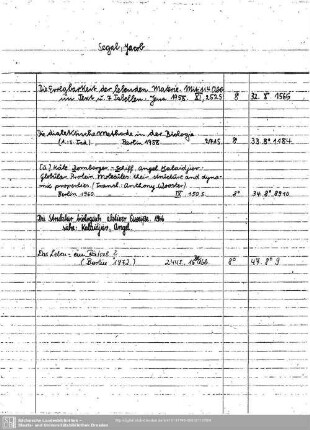 Segal, Jacob
Die Erregbarkeit der lebenden Materie. Mit 114 Abb.
im Text u. 7 Tabellen. Jena 1958. XI, 252 S. 8° 32. 8° 1565
Die dialektische Methode in der Biologie
Berlin 1958. 8° 33. 8° 1184
Käte Dornberger-Schiff, Angel Kalaidjiev:
Globular Protein Molecules. Their structure and dyna-
mic properties. (Transl.: Anthony Wooster).
Berlin 1960. IX 150 S. 8° 34. 8° 8910
Die Struktur biologisch aktiver Eiweiße. 1966
siehe: Kalaidjiev, Angel.
Das Leben - ein Rätsel?
(Berlin 1972.) 244 S. 8° 47. 8° 9